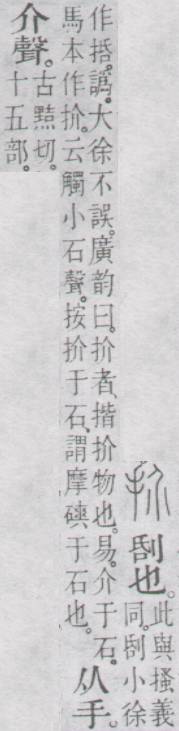 扴
刮也。
此與搔義
同。刮小徐
作括。譌。大徐不誤。廣韵曰。扴者、揩扴物也。易。介于石。
馬本作扴。云觸小石聲。按扴于石、謂摩磢于石也。
从手。
介聲。
古黠切。
十五部。